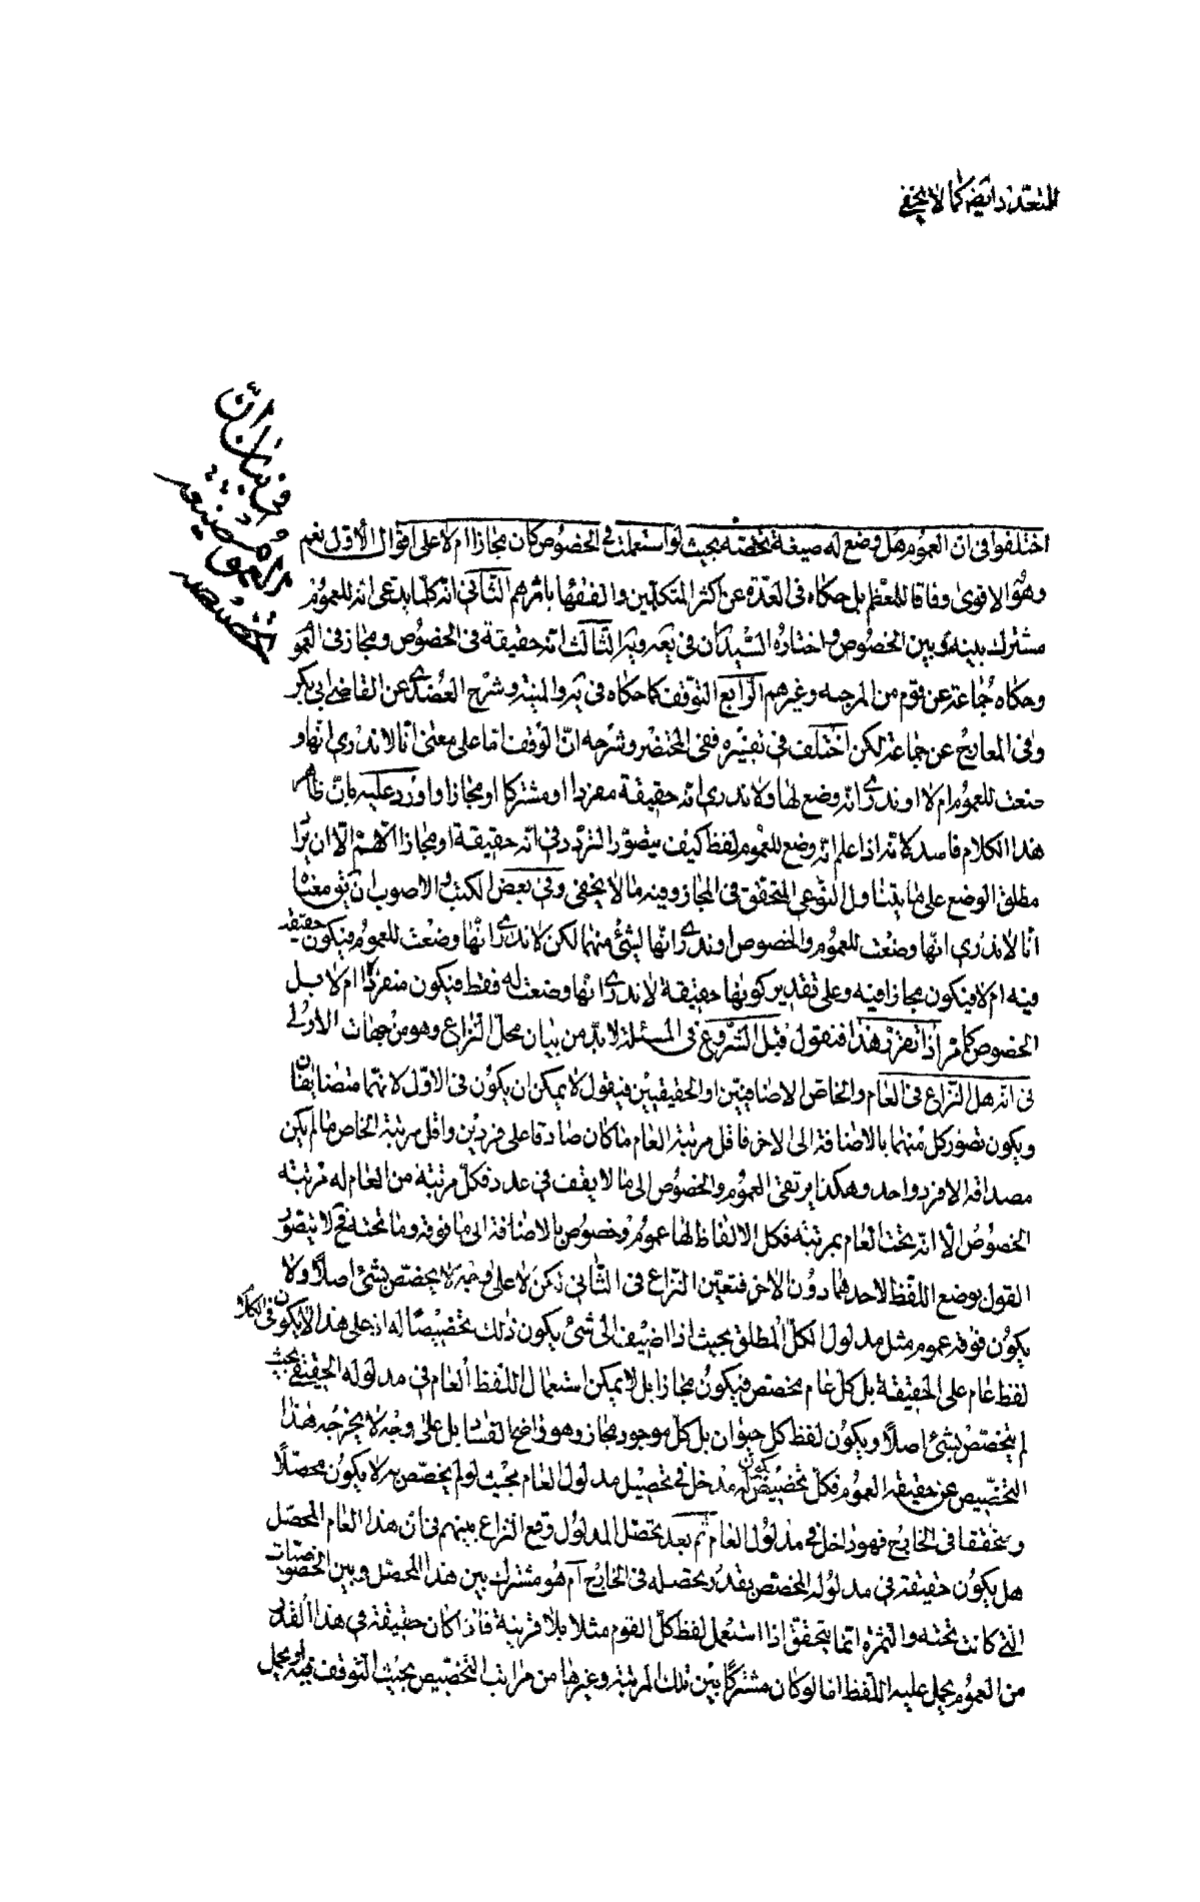 للمتعدّد ايضا كما لا يخفى
في بيان انّ
العموم صيغة
تخصّصه
اختلفوا فى ان العموم هل وضع له صيغة تخصّه بحيث لو استعملت فى الخصوص كان مجازا ام لا على اقوال الأوّل نعم
وهو الاقوى وفاقا للمعظم بل حكاه فى العدّة عن اكثر المتكلمين والفقهاء باسرهم الثانى انه كلما يدعى انه للعموم
مشترك بينه وبين الخصوص واختاره السّيدان فى يعه ويه الثالث انه حقيقة فى الخصوص ومجاز فى العمو
وحكاه جماعة عن قوم من المرجئه وغيرهم الرابع التوقف كما حكاه فى يه والمنية وشرح العضدى عن القاضى ابى بكر
وفى المعارج عن جماعة لكن اختلف فى تفسيره ففى المختصر وشرحه انّ الوقف اما على معنى انا لا ندرى انها و
ضعت للعموم ام لا او ندرى انه وضع لها ولا ندرى انه حقيقة مفردا او مشتركا او مجازا واورد عليه بان ظاهر
هذا الكلام فاسد لانه اذا علم انه وضع للعموم لفظ كيف يتصوّر التردد فى انه حقيقة او مجاز اللّهمّ الّا ان يرا
مطلق الوضع على ما يتناول النّوعى المتحقق فى المجاز وفيه ما لا يخفى وفى بعض الكتب والاصوب ان يق معناه
انا لا ندرى انّها وضعت للعموم والخصوص او ندرى انها لشئ منهما لكن لا ندرى انّها وضعت للعموم فيكون حقيقة
فيه ام لا فيكون مجازا فيه وعلى تقدير كونها حقيقة لا ندرى انها وضعت له فقط فيكون منفردا ام لا بل
الخصوص كما مرّ اذا تعرّف هذا فنقول قبل الشروع فى المسئلة لا بدّ من بيان محلّ النزاع وهو من جهات الاولى
فى انه هل النّزاع فى العام والخاصّ الاضافيّين او الحقيقيّين فيقول لا يمكن ان يكون فى الاوّل لانّهما متضايفان
ويكون تصوّر كلّ منهما بالاضافة الى الاخر فاقل مرتبة العام ما كان صادقا على فردين واقل مرتبة الخاص ما لم يكن
مصداقه الا فرد واحد وهكذا يرتقى العموم والخصوص الى ما لا يقف فى عدد فكلّ مرتبة من العام له مرتبة
الخصوص الّا انّه تحت العام بمرتبة فكل الالفاظ لها عموم وخصوص بالاضافة الى ما فوقه وما تحته فح لا يتصوّر
القول بوضع اللّفظ لاحدهما دون الاخر فتعيّن النزاع فى الثّانى لكن لا على وجه لا يخصّص بشئ اصلًا ولا
يكون فوقه عموم مثل مدلول الكلّ المطلق بحيث اذا اضيف الى شئ يكون ذلك تخصيصًا له اذ على هذا لا يكون فى الكلام
لفظ عام على الحقيقة بل كلّ عام مخصص فيكون مجازا بل لا يمكن استعمال اللفظ العام فى مدلوله الحقيقى بحيث
لم يخصّص بشئ اصلًا ويكون لفظ كل حيوان بل كلّ موجود مجاز وهو واضح الفساد بل على وجه لا يخرجه هذا
التخصيص عن حقيقة العموم فكلّ تخصيص يكون له مدخل فى تحصيل مدلول العام بحيث لو لم يخصّص به لا يكون محصّلًا
ومتحققا فى الخارج فهو داخل فى مدلول العام ثم بعد تحصّل المدلول وقع النزاع بينهم فى ان هذا العام المحصّل
هل يكون حقيقة فى مدلوله المخصّص بقدر تحصله فى الخارج أم هو مشترك بين هذا المحصّل وبين الخصوصيّات
الّتى كانت تحته والثمرة انّما يتحقق اذا استعمل لفظ كل القوم مثلا بلا قرينة فاذا كان حقيقة فى هذا القدر
من العموم يحمل عليه اللّفظ امّا لو كان مشتركًا بين تلك المرتبة وغيرها من مراتب التخصيص يجب التوقف فيه او يحمل